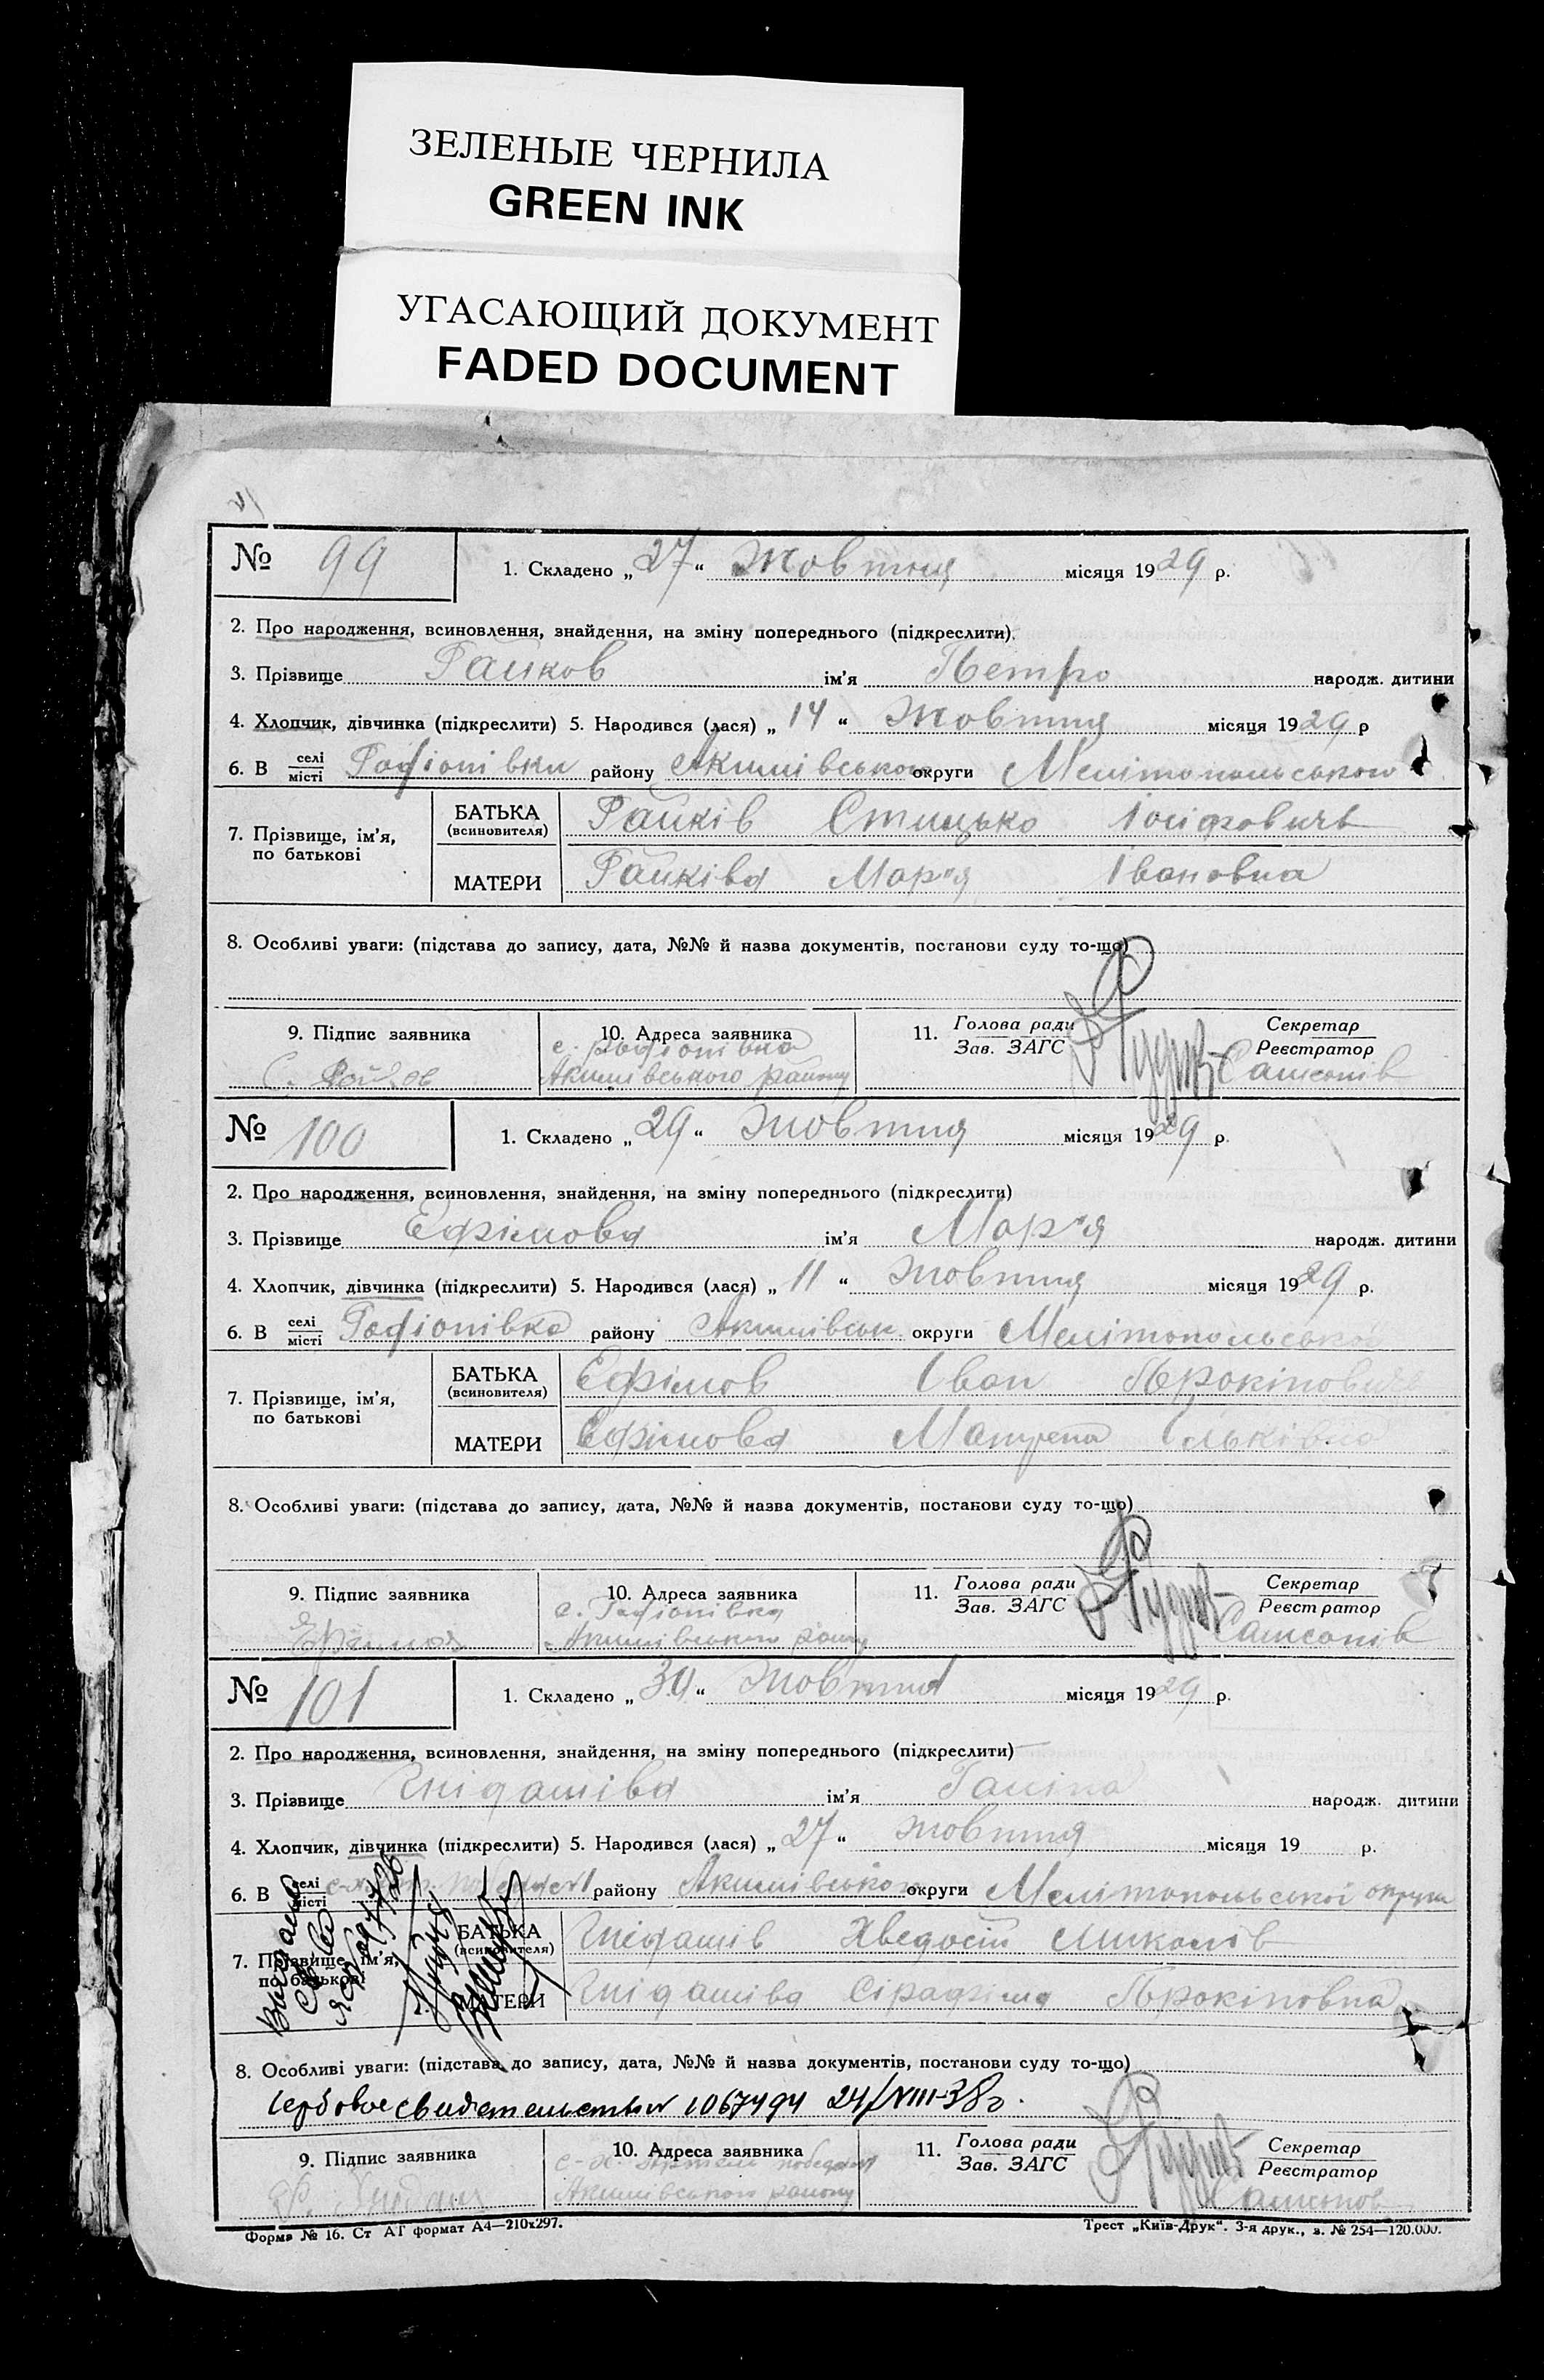 ЗЕЛЕНЫЕ ЧЕРНИЛА
GREEN INK
УГАСАЮЩИЙ ДОКУМЕНТ
FADED DOCUMENT
№ 99 1. Складено „27“ Жовтня місяця 1929 р.
2. Про народження, всиновлення, знайдення, на зміну попереднього (підкреслити).
3. Прізвище Райков ім'я Петро народж. дитини
4. Хлопчик, дівчинка (підкреслити) 5. Народився (лася) „14“ Жовтня місяця 1929 р
6. В селі місті Радіонівки району Якимівського округи Мелітопольського
7. Прізвище, ім'я, по батькові БАТЬКА (всиновителя) Райків Стицько Іосіфовичь
МАТЕРИ Райківа Мар'я Івановна
8. Особливі уваги: (підстава до запису, дата, №№ й назва документів, постанови суду то-що)
9. Підпис заявника 10. Адреса заявника 11. Голова ради Зав. ЗАГС Секретар Реєстратор
с. Радіонівка
С. Райков Якимівського району Самсонів
№ 100 1. Складено „29“ Жовтня місяця 1929 р.
2. Про народження, всиновлення, знайдення, на зміну попереднього (підкреслити)
3. Прізвище Ефімова ім'я Мар'я народж. дитини
4. Хлопчик, дівчинка (підкреслити) 5. Народився (лася) „11“ Жовтня місяця 1929 р.
6. В селі місті Радіонівка району Якимівськ. округи Мелітопольської
7. Прізвище, ім'я, по батькові БАТЬКА (всиновителя) Ефімов Іван Прокіпович
МАТЕРИ Ефімова Мотрена Ільківна
8. Особливі уваги: (підстава до запису, дата, №№ й назва документів, постанови суду то-що)
9. Підпис заявника 10. Адреса заявника 11. Голова ради Зав. ЗАГС Секретар Реєстратор
с. Радіонівка
Якимівського району Самсонів
№ 101 1. Складено „30“ Жовтня місяця 1929 р.
2. Про народження, всиновлення, знайдення, на зміну попереднього (підкреслити)
3. Прізвище Гнідашіва ім'я Галіна народж. дитини
4. Хлопчик, дівчинка (підкреслити) 5. Народився (лася) „27“ Жовтня місяця 19 р.
6. В селі місті району Якимівського округи Мелітопольської округи
7. Прізвище, ім'я, по батькові БАТЬКА (всиновителя) Гнідашів Хведосій
МАТЕРИ Гнідашіва Сірафіма Прокіповна
8. Особливі уваги: (підстава до запису, дата, №№ й назва документів, постанови суду то-що)
Гербовое свидетельство 1067494 24/VIII-38г.
9. Підпис заявника 10. Адреса заявника 11. Голова ради Зав. ЗАГС Секретар Реєстратор
Якимівського району Самсонов
Форма № 16. Ст АГ формат А4—210х297. Трест „Київ-Друк“. 3-я друк., з. № 254—120.000.